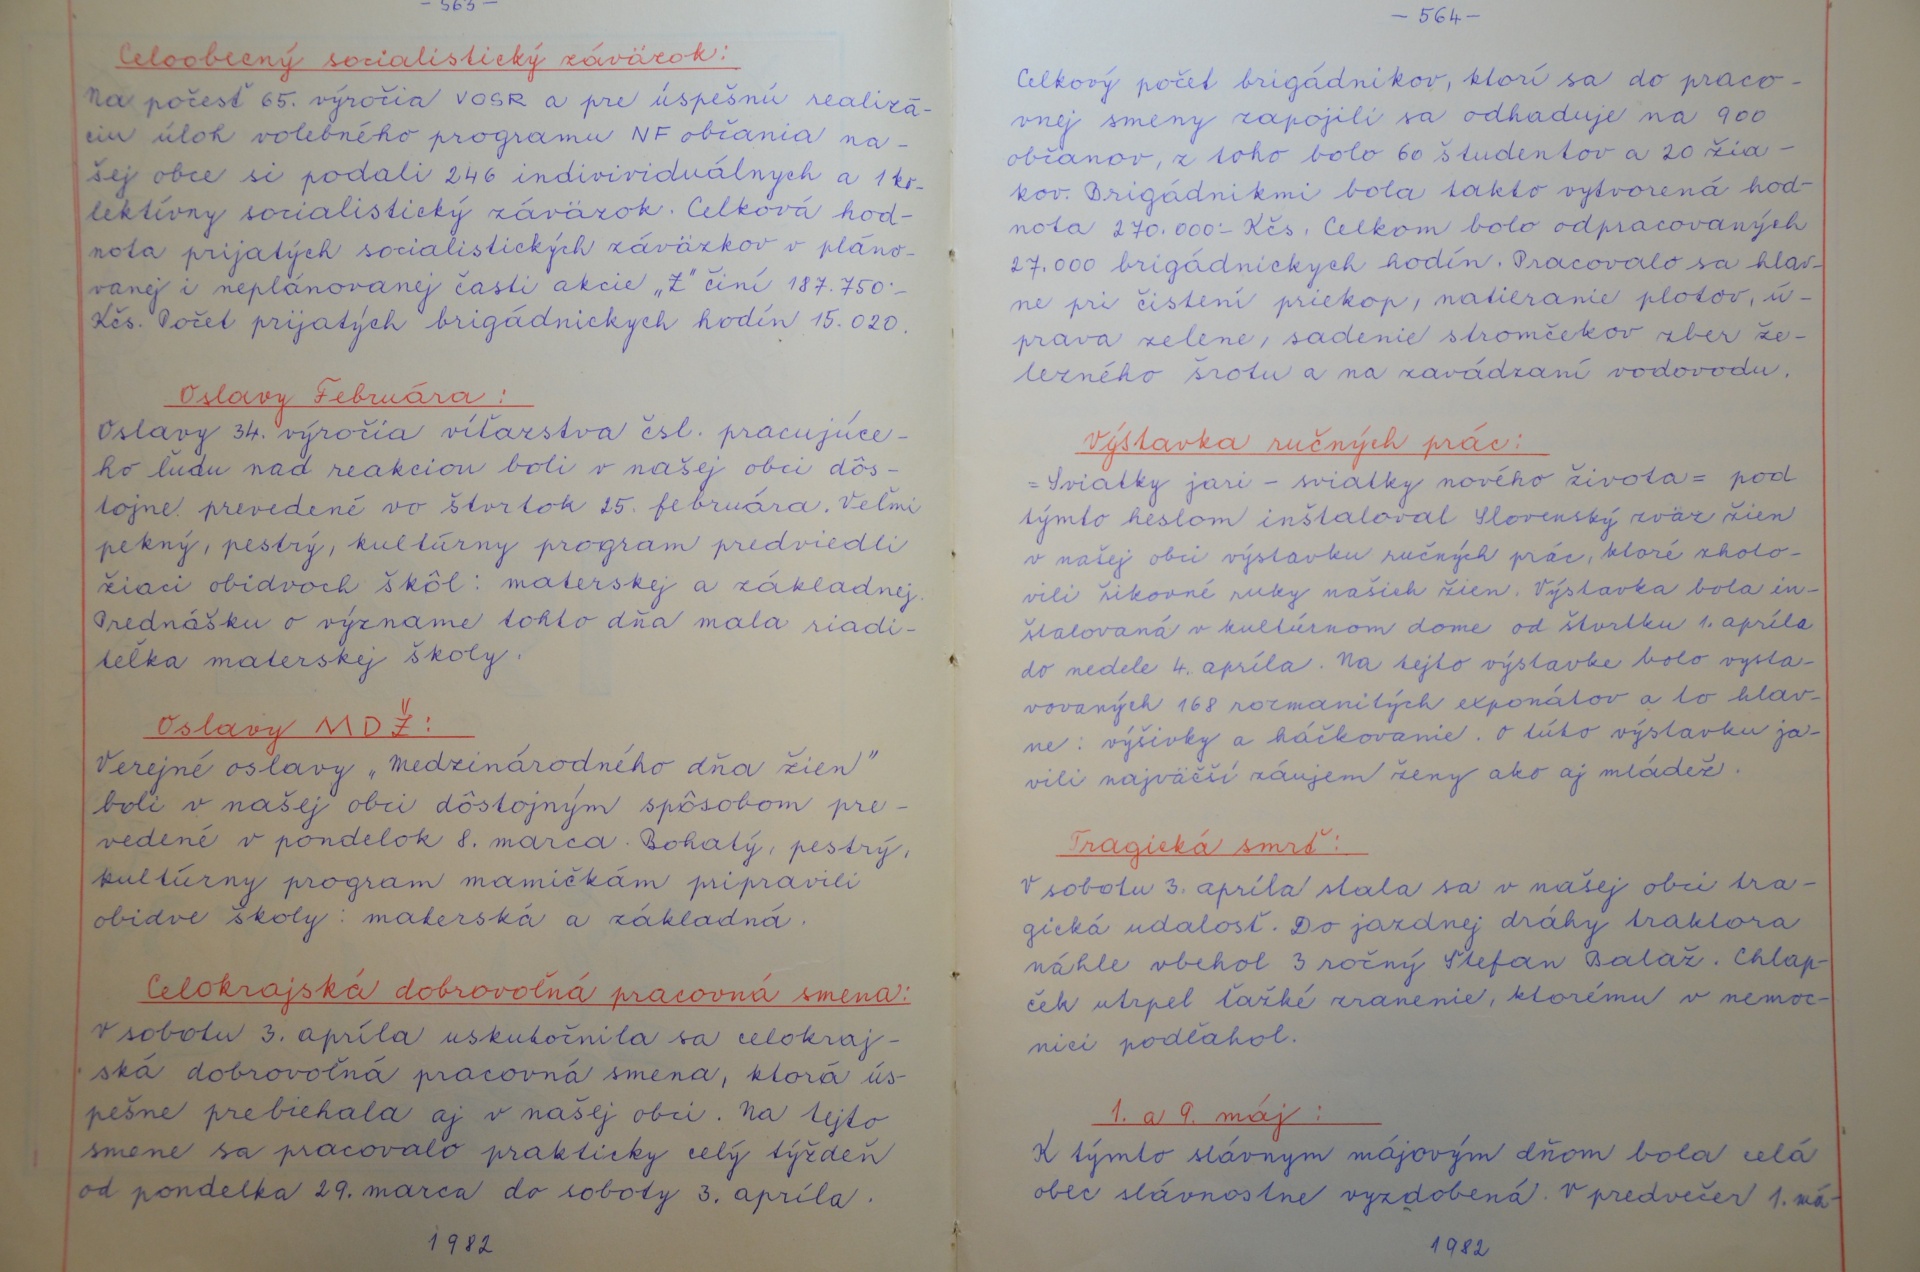 - 563 -
Celoobecný socialistický záväzok:
Na počesť 65. výročia VOSR a pre úspešnú realizá-
ciu úloh volebného programu NF občania na-
šej obce si podali 246 indivividuálnych a 1 ko-
lektívny socialistický záväzok. Celková hod-
nota prijatých socialistických záväzkov v pláno-
vanej i neplánovanej časti akcie „Z" činí 187.750.-
Kčs. Počet prijatých brigádnickych hodín 15.020.
Oslavy Februára:
Oslavy 34. výročia víťazstva čsl. pracujúce-
ho ľudu nad reakciou boli v našej obci dôs-
tojne prevedené vo štvrtok 25. februára. Veľmi
pekný, pestrý, kultúrny program predviedli
žiaci obidvoch škôl: materskej a základnej.
Prednášku o význame tohto dňa mala riadi-
teľka materskej školy.
Oslavy MDŽ:
Verejné oslavy „Medzinárodného dňa žien"
boli v našej obci dôstojným spôsobom pre-
vedené v pondelok 8. marca. Bohatý, pestrý,
kultúrny program mamičkám pripravili
obidve školy: materská a základná.
Celokrajská dobrovoľná pracovná smena:
V sobotu 3. apríla uskutočnila sa celokraj-
ská dobrovoľná pracovná smena, ktorá ús-
pešne prebiehala aj v našej obci. Na tejto
smene sa pracovalo prakticky celý týždeň
od pondelka 29. marca do soboty 3. apríla.
1982
- 564 -
Celkový počet brigádnikov, ktorí sa do praco-
vnej smeny zapojili sa odhaduje na 900
občanov, z toho bolo 60 študentov a 20 žia-
kov. Brigádnikmi bola takto vytvorená hod-
nota 270.000.- Kčs. Celkom bolo odpracovaných
27.000 brigádnickych hodín. Pracovalo sa hlav-
ne pri čistení priekop, natieranie plotov, ú-
prava zelene, sadenie stromčekov zber že-
lezného šrotu a na zavádzaní vodovodu.
Výstavka ručných prác:
=Sviatky jari - sviatky nového života= pod
týmto heslom inštaloval Slovenský zväz žien
v našej obci výstavku ručných prác, ktoré zhoto-
vili šikovné ruky našich žien. Výstavka bola in-
štalovaná v kultúrnom dome od štvrtku 1. apríla
do nedele 4. apríla. Na tejto výstavke bolo vysta-
vovaných 168 rozmanitých exponátov a to hlav-
ne: výšivky a háčkovanie. O túto výstavku ja-
vili najväčší záujem ženy ako aj mládež.
Tragická smrť:
V sobotu 3. apríla stala sa v našej obci tra-
gická udalosť. Do jazdnej dráhy traktora
náhle vbehol 3 ročný Štefan Baláž. Chlap-
ček utrpel ťažké zranenie, ktorému v nemoc-
nici podľahol.
1. a 9. máj:
K týmto slávnym májovým dňom bola celá
obec slávnostne vyzdobená. V predvečer 1. má-
1982